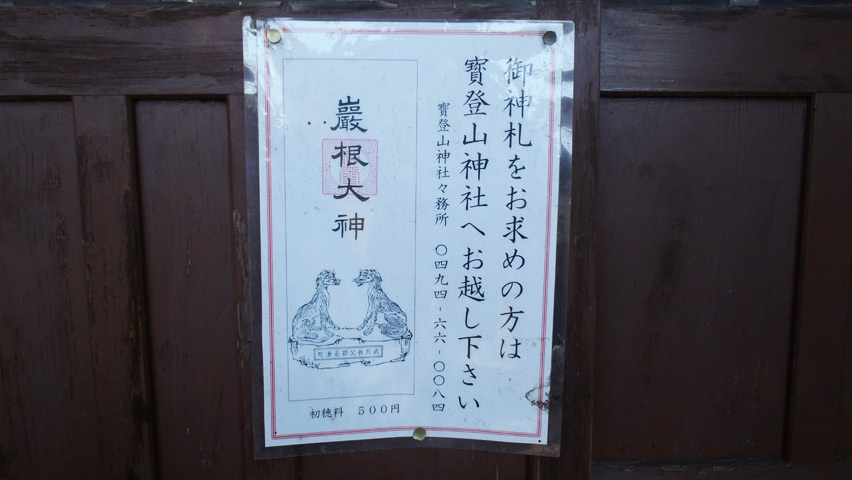 御神札をお求めの方は
寶登山神社へお越し下さい
寶登山神社々務所 〇四九四-六六-〇〇八四
巖根大神
武州秩父郡長瀞町
初穂料 500円